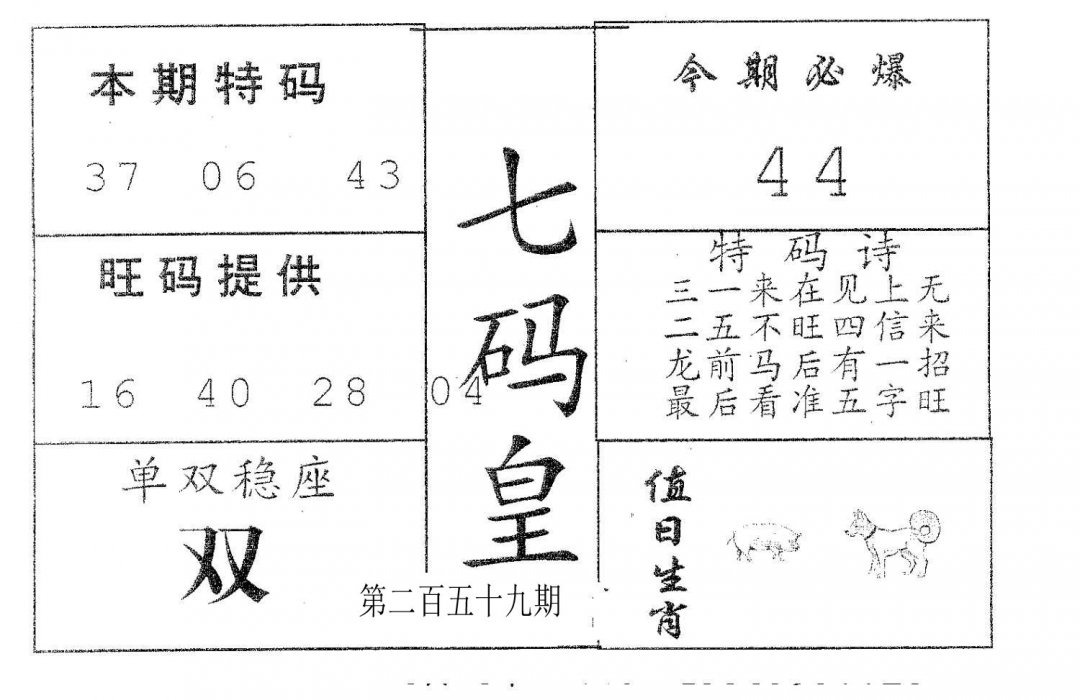 本期特码
37 06 43
旺码提供
16 40 28 04
单双稳座
双
七码皇
第二百五十九期
今期必爆
44
特码诗
三一来在见上无
二五不旺四信来
龙前马后有一招
最后看准五字旺
值日生肖